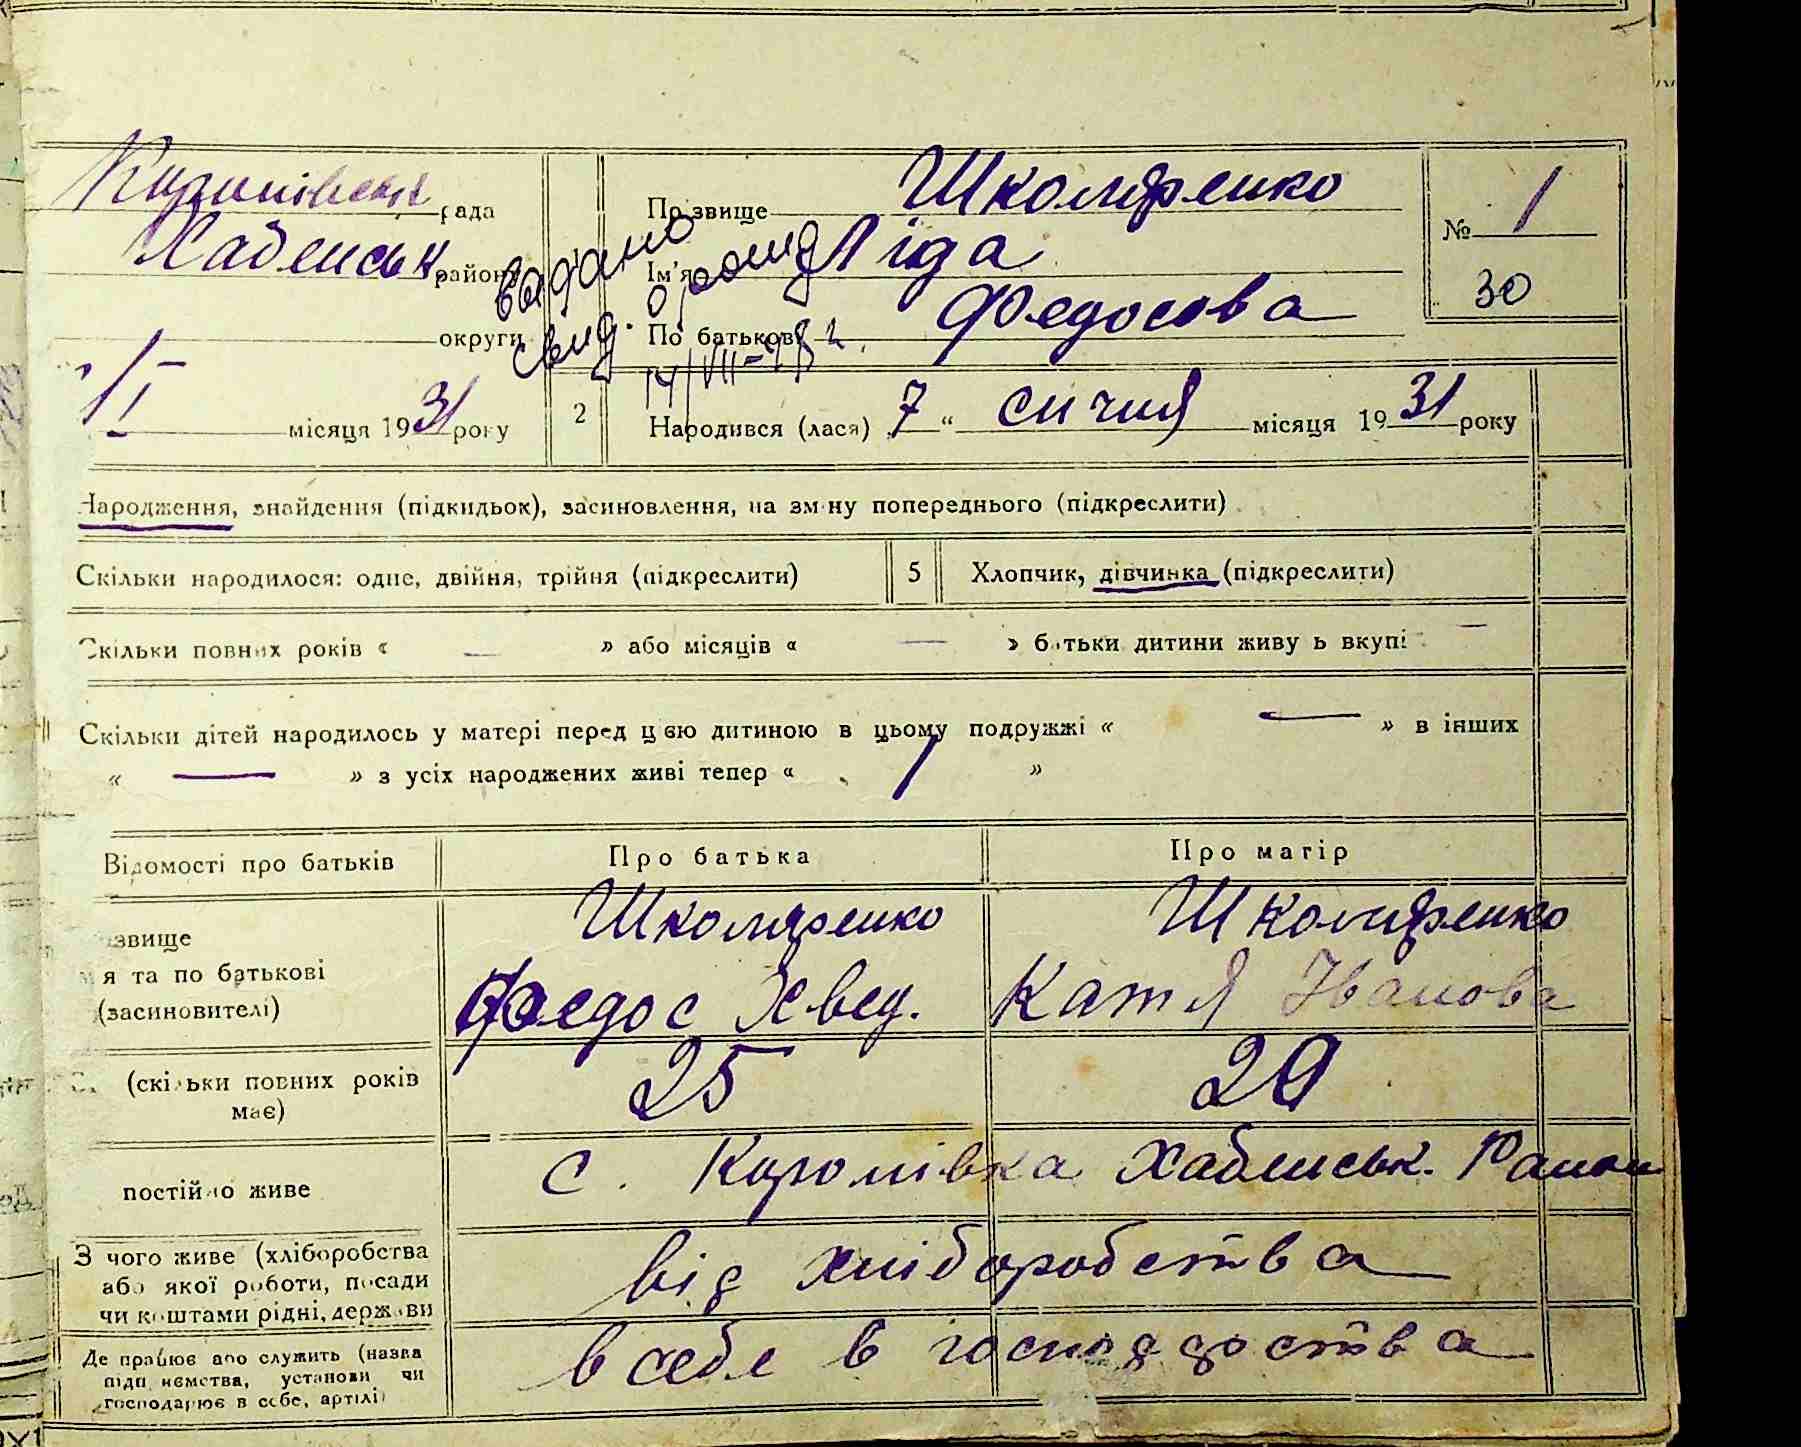 рада
Хабенськ району
округи
1/I місяця 1931 року
Прізвище Школяренко
Ім'я Ліда
По батькові Федосова
видано
свид.
14/VII-
№ 1
30
2 Народився (лася) 7 " січня місяця 1931 року
Народження, знайдення (підкидьок), засиновлення, на зміну попереднього (підкреслити)
Скільки народилося: одне, двійня, трійня (підкреслити) 5 Хлопчик, дівчинка (підкреслити)
Скільки повних років « — » або місяців « — » батьки дитини живуть вкупі —
Скільки дітей народилось у матері перед цією дитиною в цьому подружжі « — » в інших
« — » з усіх народжених живі тепер « 1 »
Відомості про батьків Про батька Про матір
звище Школяренко Школяренко
я та по батькові Федос Хвед. Катя Іванова
(засиновителі)
(скільки повних років 25 20
має)
постійно живе с. Королівка Хабенськ. Район
З чого живе (хліборобства від хліборобства
або якої роботи, посади
чи коштами рідні, держави
Де працює або служить (назва в себе в господарства
підприємства, установи чи
господарює в себе, артілі)